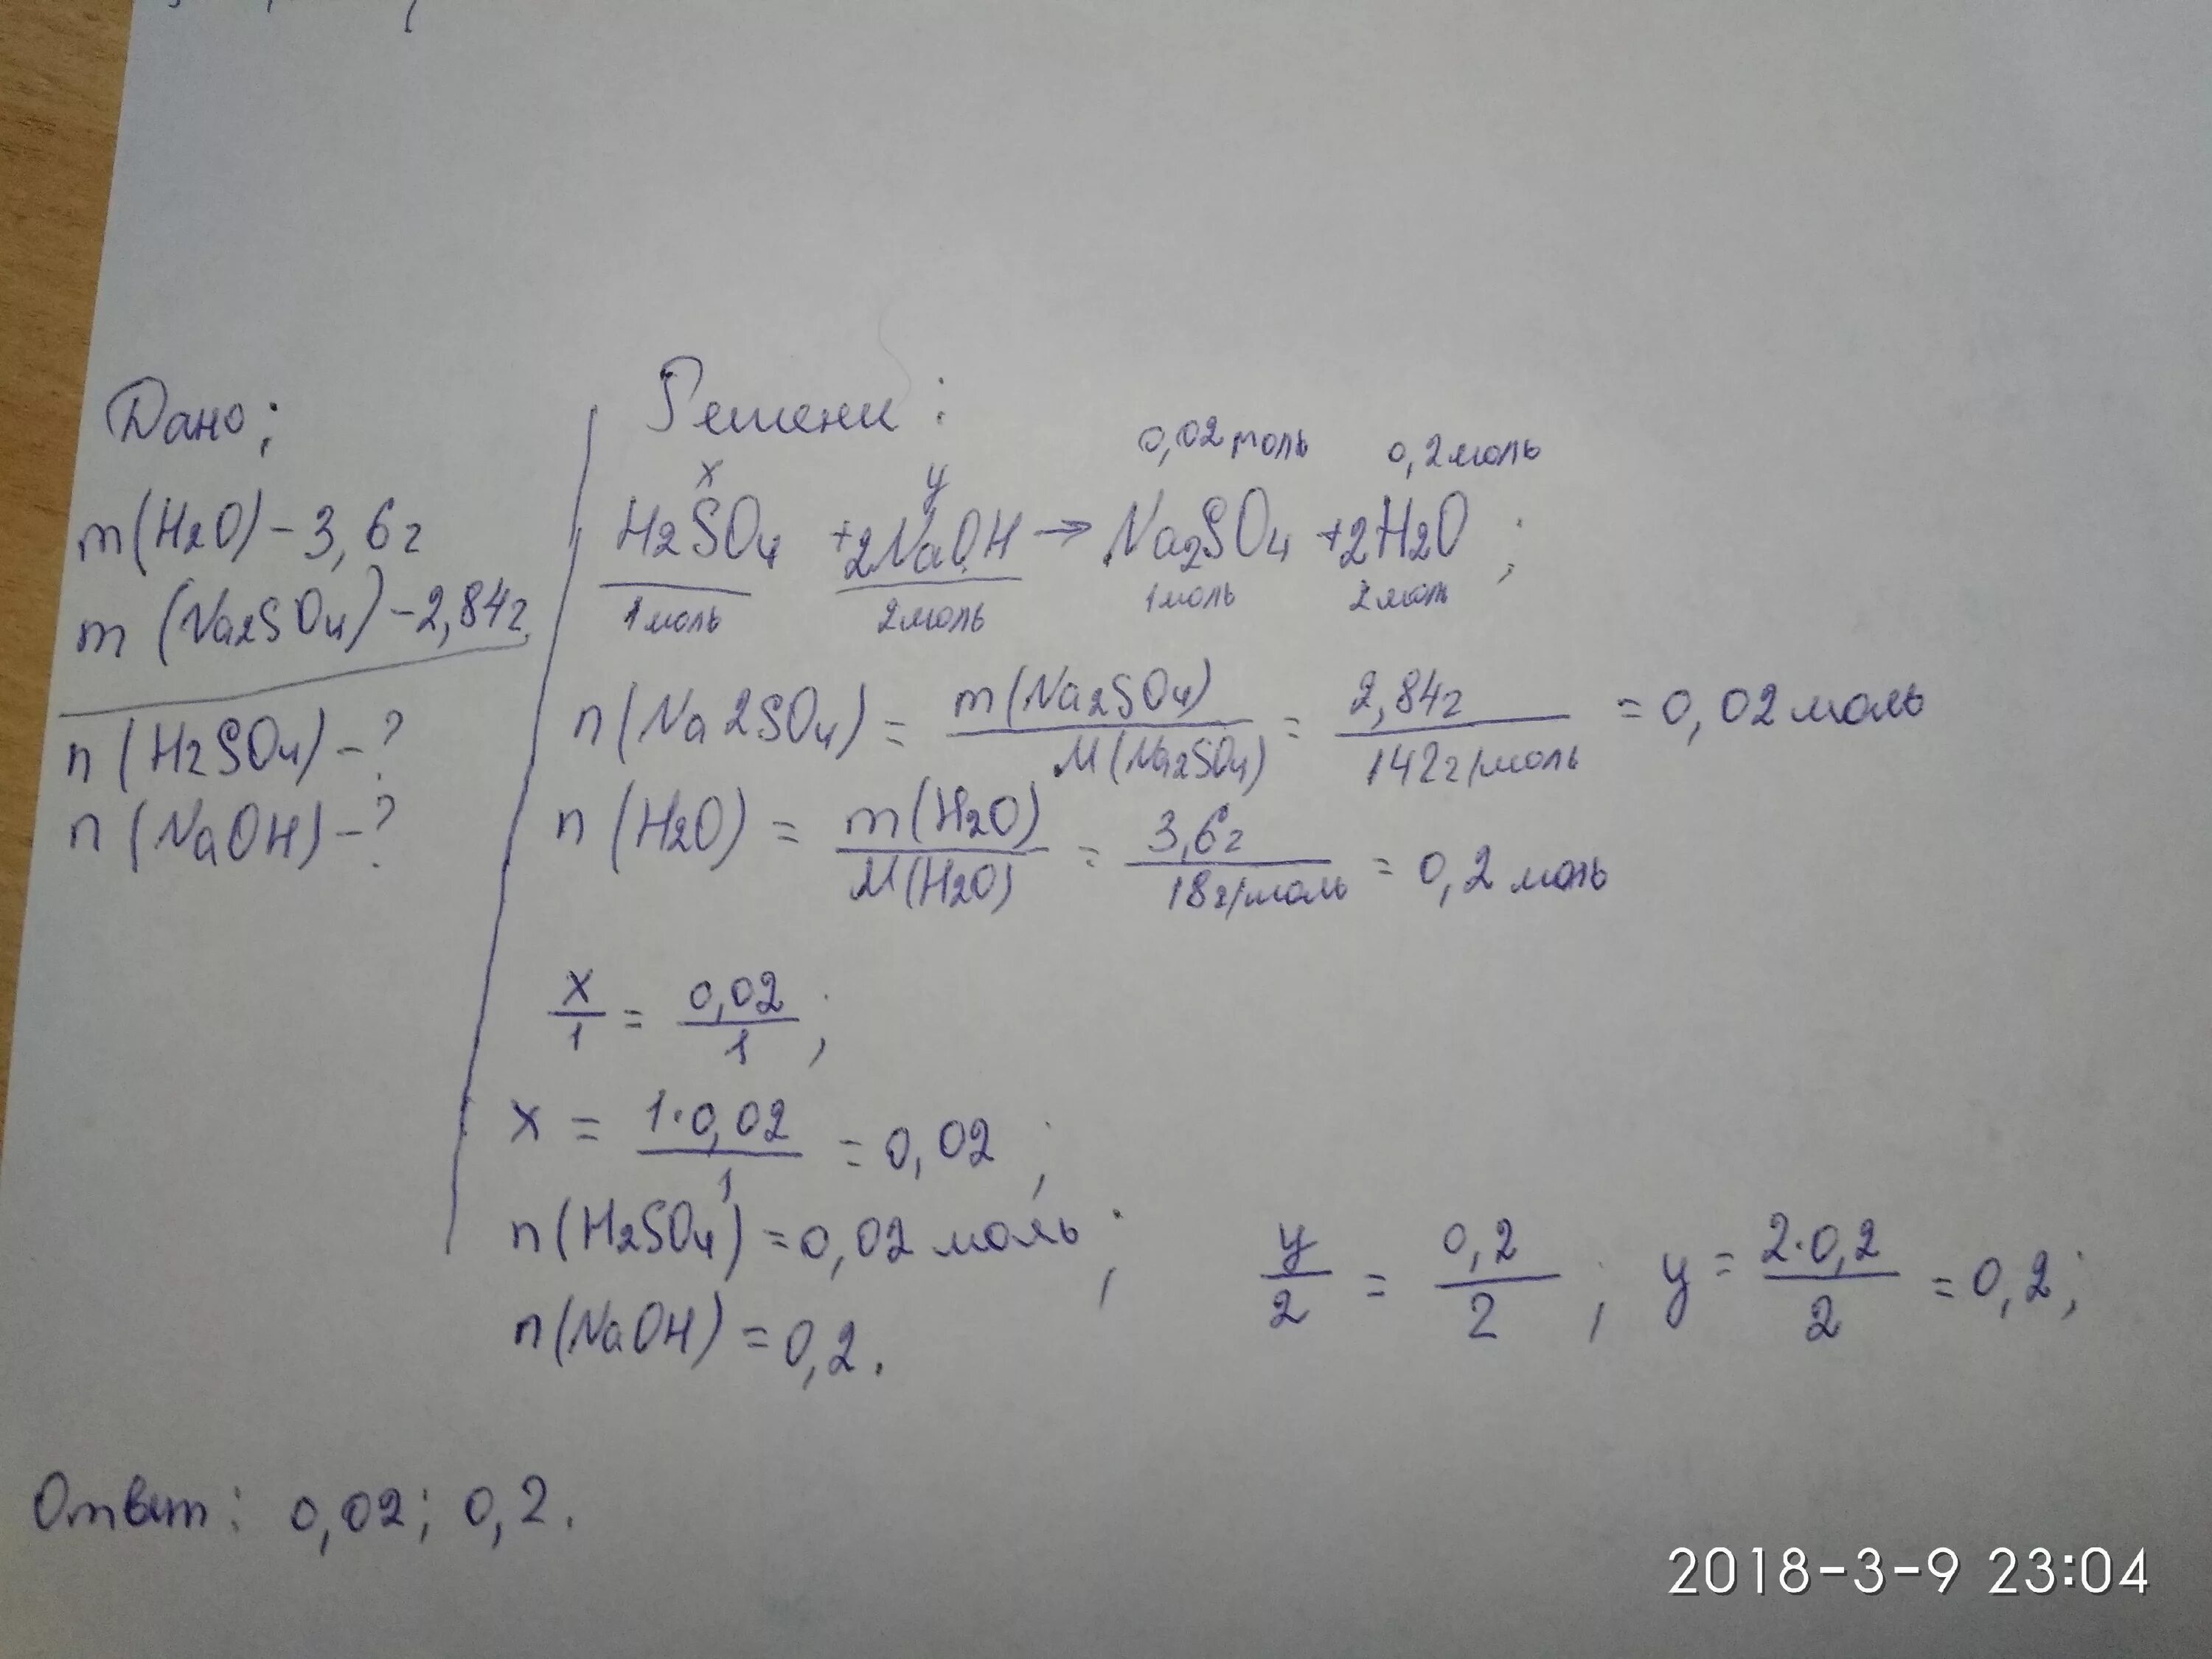 Дано:
m(H2O) - 3,6г
m(Na2SO4) - 2,84г
n(H2SO4) - ?
n(NaOH) - ?
Решени:
x y 0,02 моль 0,2 моль
H2SO4 + 2NaOH → Na2SO4 + 2H2O;
1 моль 2 моль 1 моль 2 моль
n(Na2SO4) = m(Na2SO4) / M(Na2SO4) = 2,84г / 142г/моль = 0,02 моль
n(H2O) = m(H2O) / M(H2O) = 3,6г / 18г/моль = 0,2 моль
x/1 = 0,02/1;
x = 1·0,02 / 1 = 0,02;
n(H2SO4) = 0,02 моль; y/2 = 0,2/2; y = 2·0,2 / 2 = 0,2;
n(NaOH) = 0,2.
Ответ: 0,02; 0,2.
2018-3-9 23:04